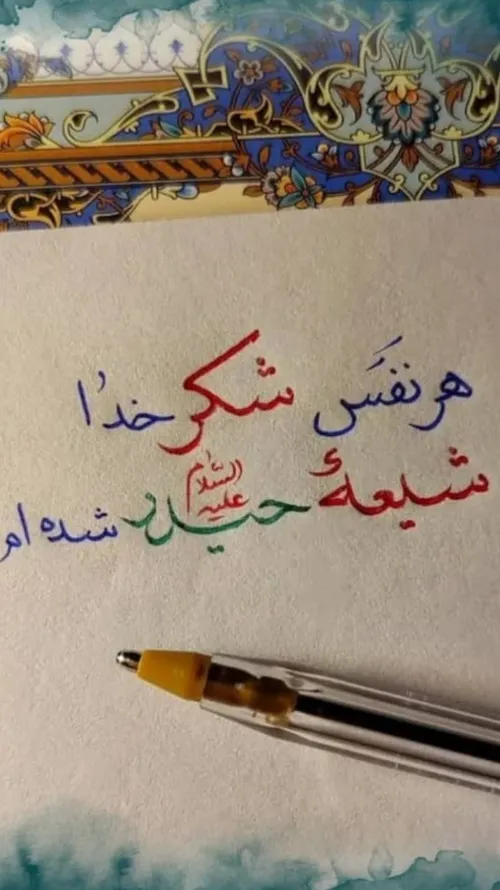 هر نفَس شکر خدا
شیعهٔ حیدر علیه السّلام شده ام